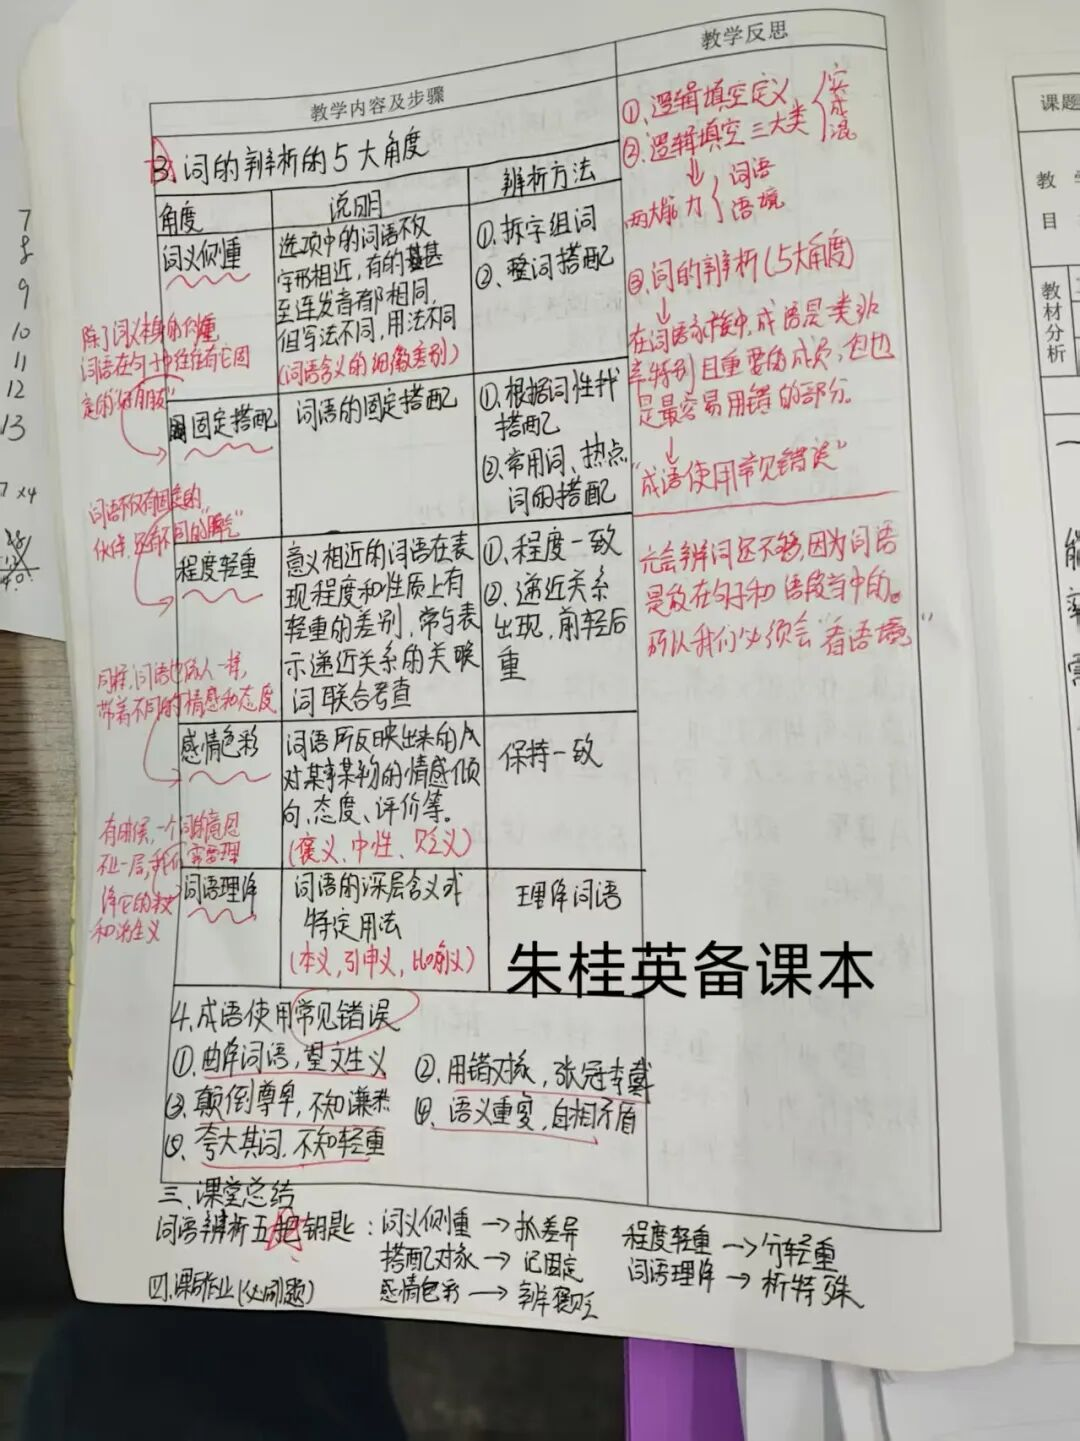 教学内容及步骤
教学反思
3、词的辨析的5大角度
角度
说明
辨析方法
词义侧重
选项中的词语不仅
字形相近，有的甚
至连发音都相同，
但写法不同，用法不同
(词语含义的细微差别)
①、拆字组词
②、整词搭配
除了词义本身的侧重
词语在句子中往往有它固
定的"好朋友"
固定搭配
词语的固定搭配
①、根据词性找
搭配
②、常用词、热点
词的搭配
词语不仅有固定的
伙伴，还有不同的"脾气"
程度轻重
意义相近的词语在表
现程度和性质上有
轻重的差别，常与表
示递近关系的关联
词联合考查
①、程度一致
②、递近关系
出现，前轻后
重
同样，词语也像人一样，
带着不同的情感和态度
感情色彩
词语所反映出来的人
对某事某物的情感倾
向、态度、评价等。
(褒义、中性、贬义)
保持一致
有时候，一个词的意思
不止一层，我们需要理
解它的本义
和派生义
词语理解
词语的深层含义或
特定用法
(本义，引申义，比喻义)
理解词语
朱桂英备课本
4、成语使用常见错误
①、曲解词语，望文生义
②、用错对象，张冠李戴
③、颠倒尊卑，不知谦恭
④、语义重复，自相矛盾
⑤、夸大其词，不知轻重
三、课堂总结
词语辨析五把钥匙：词义侧重→抓差异
程度轻重→分轻重
搭配对象→记固定
词语理解→析特殊
四、课后作业(必刷题)
感情色彩→辨褒贬
①、逻辑填空定义
②、逻辑填空三大类
实
成
混
两大能力
词语
语境
③、词的辨析(5大角度)
在词语家族中，成语是一类非
常特别且重要的成员，但也
是最容易用错的部分。
"成语使用常见错误"
光会辨词还不够，因为词语
是放在句子和语段当中的。
所以我们必须会"看语境"
课题
教 学
目
教
材
分
析
7
8
9
10
11
12
13
7×4